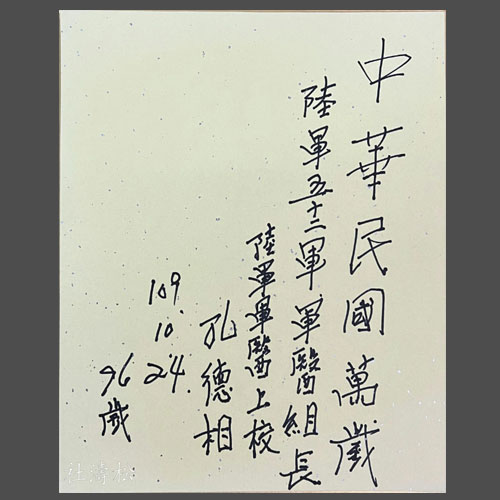 中華民國萬歲
陸軍五十二軍軍醫組長
陸軍軍醫上校
孔德相
109.10.24.
96歲